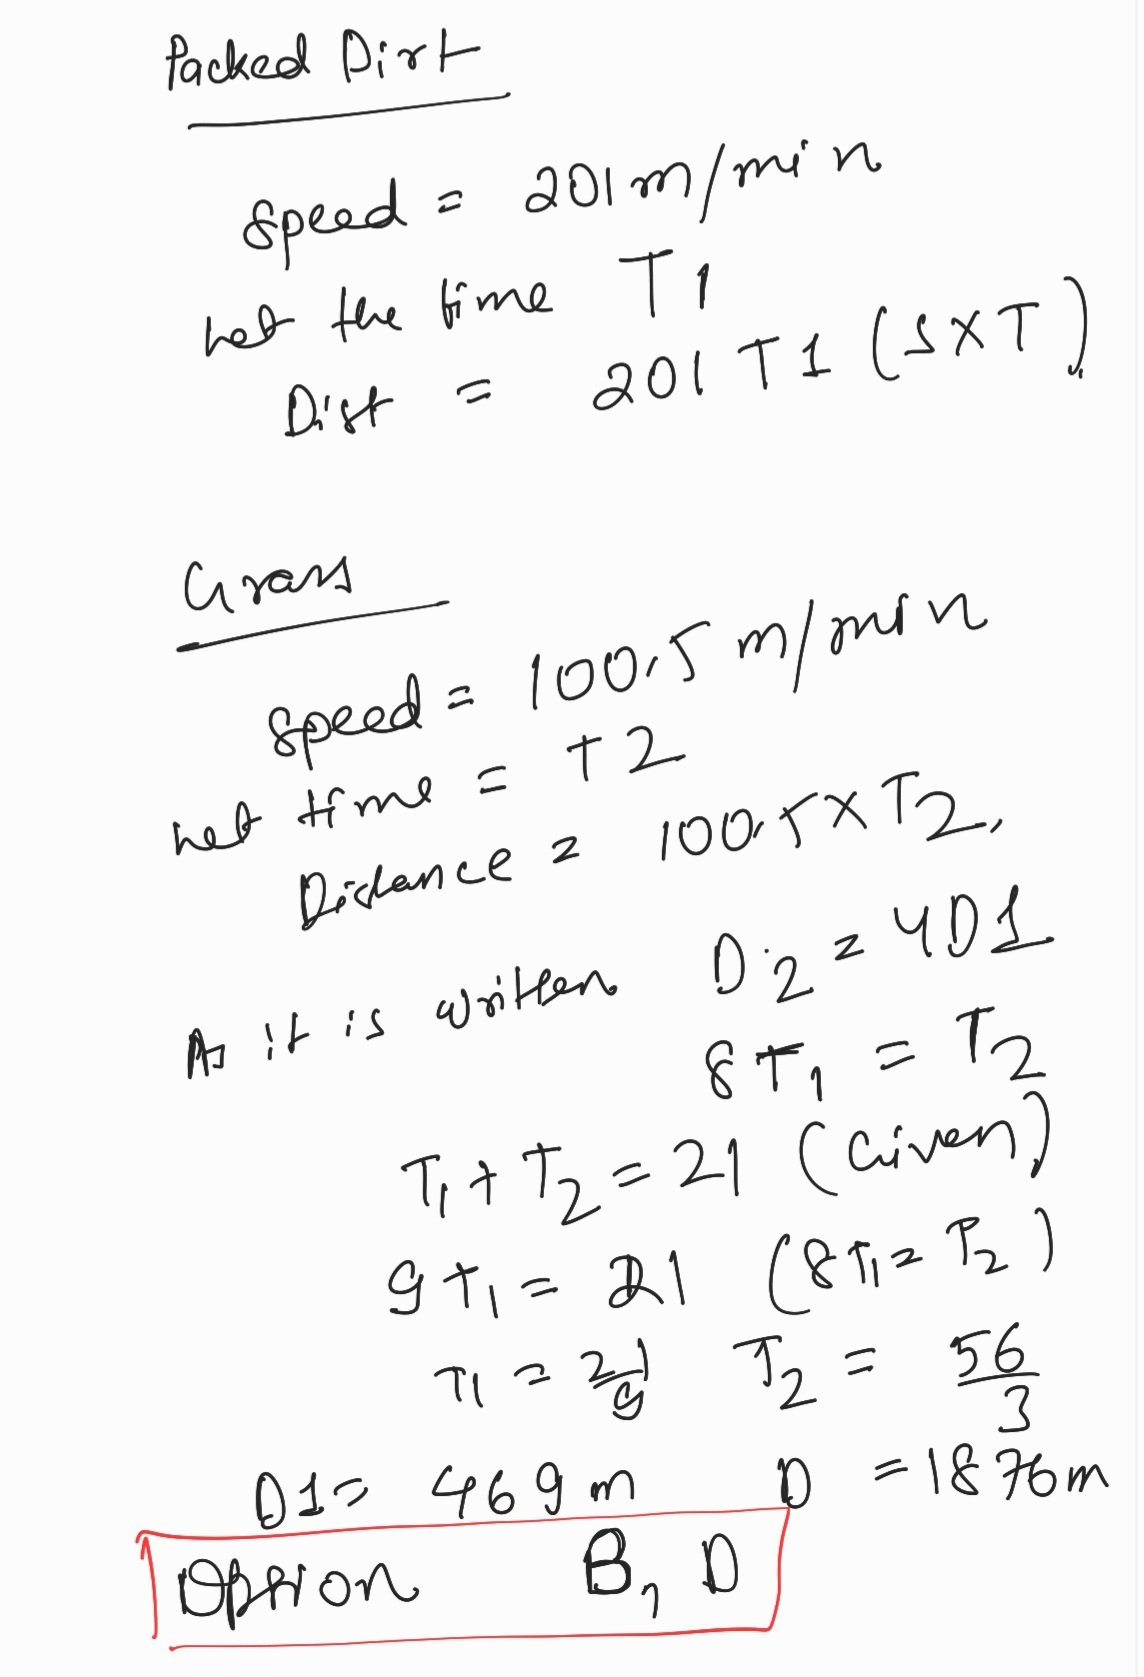 Packed Dirt
Speed = 201 m/min
Let the time T1
Dist = 201 T1 (S×T)
Grass
Speed = 100.5 m/min
Let time = T2
Distance = 100.5 × T2,
As it is written D2 = 4D1
8T1 = T2
T1 + T2 = 21 (Given)
9T1 = 21 (8T1 = T2)
T1 = 21/9 T2 = 56/3
D1 = 469 m D = 1876 m
Option B, D